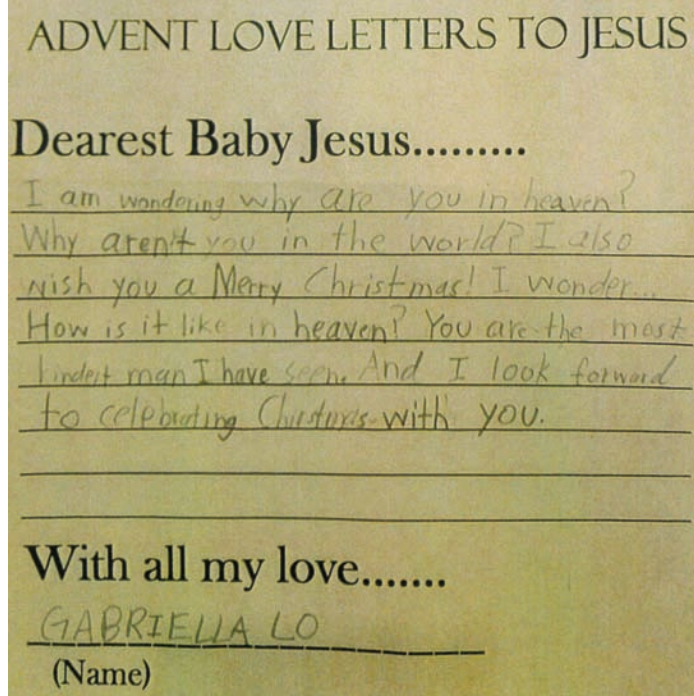 ADVENT LOVE LETTERS TO JESUS
Dearest Baby Jesus.........
I am wondering why are you in heaven?
Why aren't you in the world? I also
wish you a Merry Christmas! I wonder...
How is it like in heaven? You are the most
kindest man I have seen. And I look forward
to celebrating Christmas with you.
With all my love.......
GABRIELLA LO
(Name)